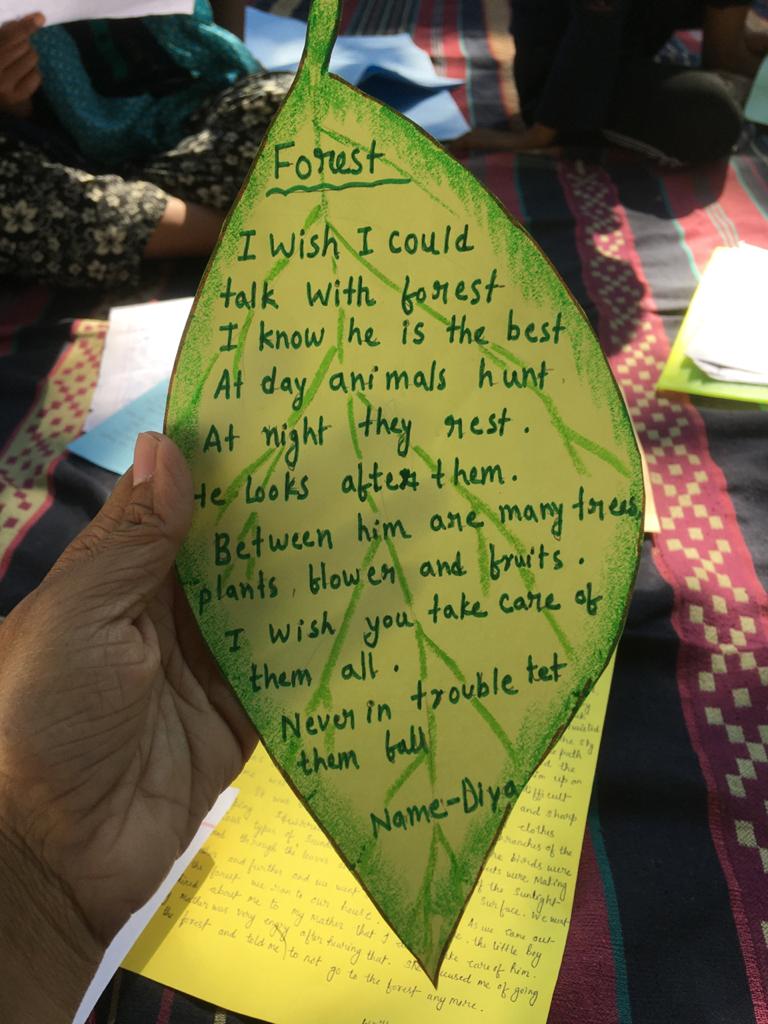 Forest
I wish I could
talk with forest
I know he is the best
At day animals hunt
At night they rest.
He Looks after them.
Between him are many trees,
plants, flower and fruits.
I wish you take care of
them all.
Never in trouble tet
them fall
Name-Diya
the path
him up on
difficult
and sharp
clothes
branches of the
birds were
making
of the sunlight
surface. We went
types of sound
through the leaves
and further and we went
the forest we ran to our house. As we came out
about me to my mother that I the little boy
mother was very angry after hearing that. She take care of him.
the forest and told me to not go to the forest any more. of going